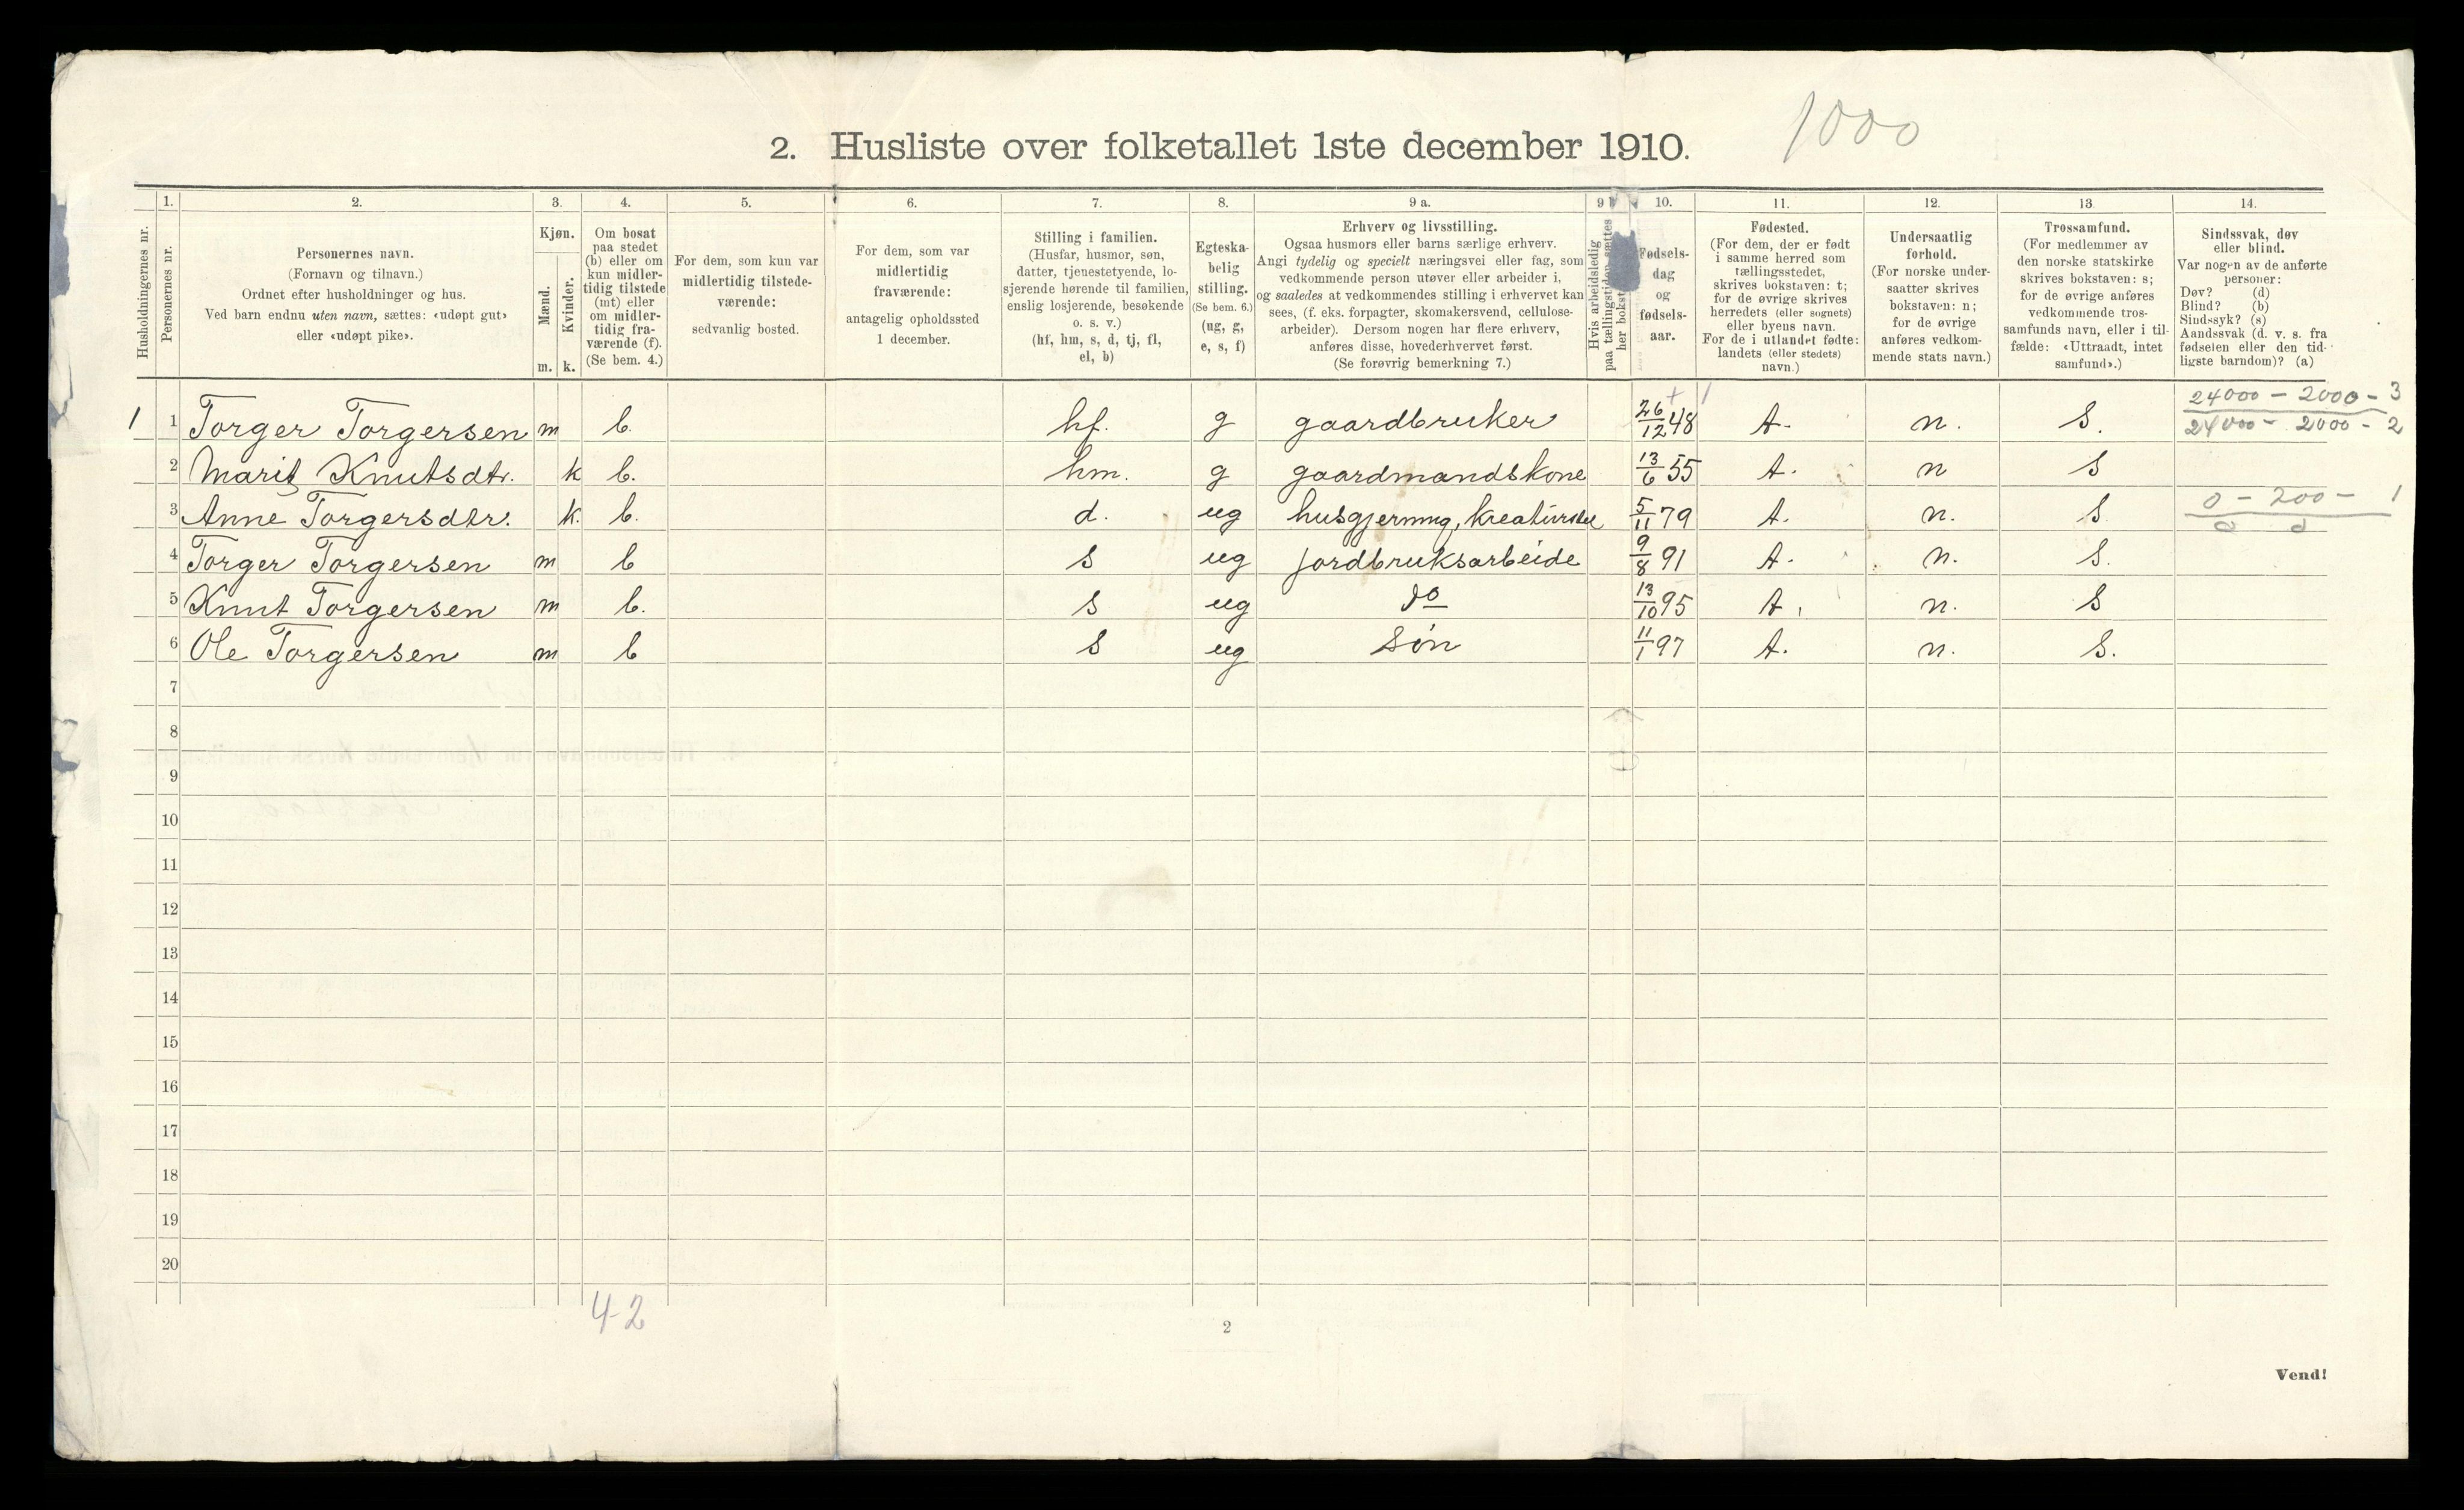 2. Husliste over folketallet 1ste december 1910.
1000
1. 2. 3. 4. 5. 6. 7. 8. 9 a. 9 10. 11. 12. 13 14.
Husholdningernes nr.
Personernes nr.
Personernes navn.
(Fornavn og tilnavn.)
Ordnet efter husholdninger og hus.
Ved barn endnu uten navn, sættes: «udøpt gut»
eller «udøpt pike».
Kjøn.
Mænd.
Kvinder.
m. k.
Om bosat
paa stedet
(b) eller om
kun midler-
tidig tilstede
(mt) eller
om midler-
tidig fra-
værende (f).
(Se bem. 4.)
For dem, som kun var
midlertidig tilstede-
værende:
sedvanlig bosted.
For dem, som var
midlertidig
fraværende:
antagelig opholdssted
1 december.
Stilling i familien.
(Husfar, husmor, søn,
datter, tjenestetyende, lo-
sjerende hørende til familien,
enslig losjerende, besøkende
o. s. v.)
(hf, hm, s, d, tj, fl,
el, b)
Egteska-
belig
stilling.
(Se bem. 6.)
(ug, g,
e, s, f)
Erhverv og livsstilling.
Ogsaa husmors eller barns særlige erhverv.
Angi tydelig og specielt næringsvei eller fag, som
vedkommende person utøver eller arbeider i,
og saaledes at vedkommendes stilling i erhvervet kan
sees, (f. eks. forpagter, skomakersvend, cellulose-
arbeider). Dersom nogen har flere erhverv,
anføres disse, hovederhvervet først.
(Se forøvrig bemerkning 7.)
Hvis arbeidsledig
paa tællingstiden sættes
her bokst
Fødsels-
dag
og
fødsels-
aar.
Fødested.
(For dem, der er født
i samme herred som
tællingsstedet,
skrives bokstaven: t;
for de øvrige skrives
herredets (eller sognets)
eller byens navn.
For de i utlandet fødte:
landets (eller stedets)
navn.)
Undersaatlig
forhold.
(For norske under-
saatter skrives
bokstaven: n;
for de øvrige
anføres vedkom-
mende stats navn.)
Trossamfund.
(For medlemmer av
den norske statskirke
skrives bokstaven: s;
for de øvrige anføres
vedkommende tros-
samfunds navn, eller i til-
fælde: «Uttraadt, intet
samfund».)
Sindssvak, døv
eller blind.
Var nogen av de anførte
personer:
Døv? (d)
Blind? (b)
Sindssyk? (s)
Aandssvak (d. v. s. fra
fødselen eller den tid-
ligste barndom)? (a)
24000 - 2000 - 3
1 1 Torger Torgersen m b. hf. g gaardbruker 26/12 48 t. n. S. 24000 - 2000 - 2
2 Marit Knutsdtr. k b. hm. g gaardmandskone 13/6 55 t. n S
0 - 200 - 1
3 Anne Torgersdtr. k. b. d. ug husgjerning, kreaturstel 5/11 79 t. n. S
4 Torger Torgersen m b s ug jordbruksarbeide 9/8 91 t. n. S.
5 Knut Torgersen m b. s ug do 13/10 95 t. n. S
6 Ole Torgersen m b s ug søn 11/1 97 t. n. S.
7
8
9
10
11
12
13
14
15
16
17
18
19
20
4-2
2
Vend!